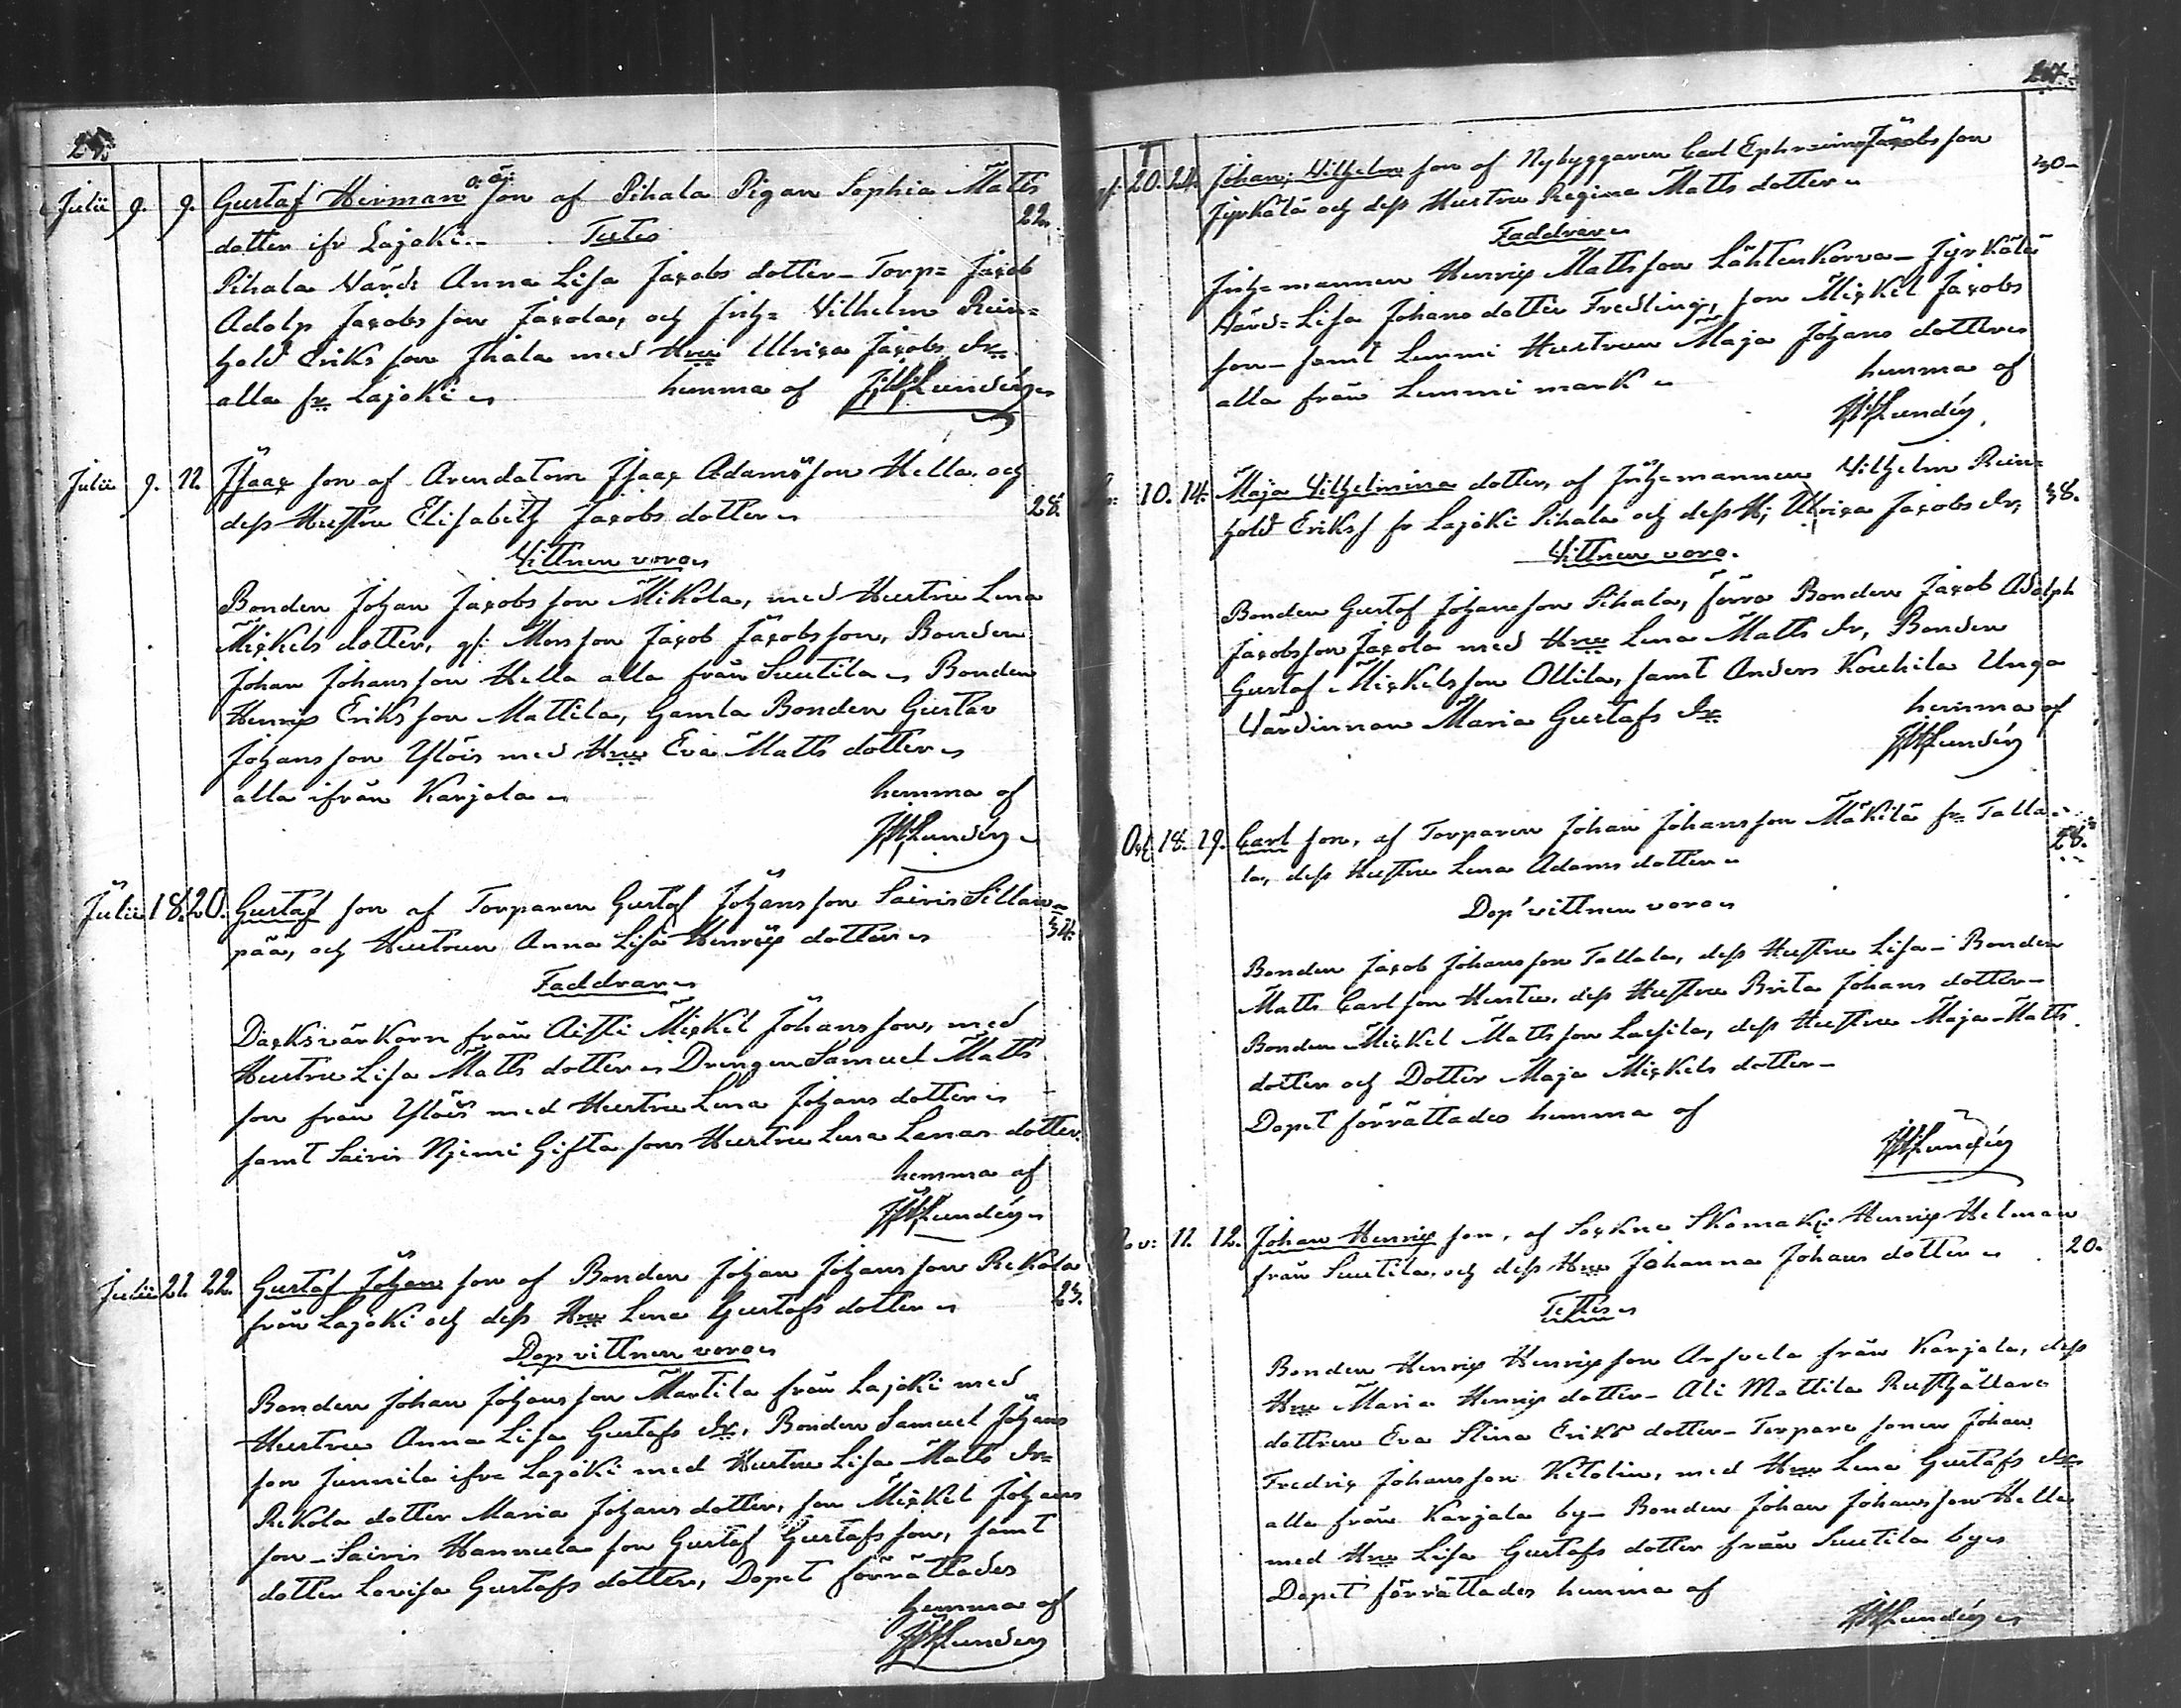 Julii 9. 9. Gustaf Herman o: äg: son af Pihala Pigan Sophia Matts
dotter ifr Lajoki.- Testes 22.
Pihala Värd: Anna Lisa Jacobs dotter – Torp= Jacob
Adolp Jacobs son Jacola, och Inh= Vilhelm Rein=
hold Eriks son Ihala med Hru Ulrica Jacobs dr
alla fr Lajoki hemma af Lundén
Julii 9. 11. Isaac son af Arendatorn Isaac Adams son Hella och
dess Hustru Elisabeth Jacobs dotter 28.
Vittnen voro
Bonden Johan Jacobs son Mikola, med Hustru Lena
Mickels dotter, gl: Mons son Jacob Jacobs son, Bonden
Johan Johans son Hella alla från Suutila Bonden
Henric Eriks son Mattila, Gamla Bonden Gustav
Johans son Ylöis med Hru Eva Matts dotter
alla ifrån Karjala hemma af
Lundén
Julii 18. 20. Gustaf son af Torparen Gustaf Johans son Sairis Sillan=
pää, och Hustrun Anna Lisa Henric dotter 34.
Faddrar
Dacksvärkorn från Aisti Mickel Johans son, med
Hustru Lisa Matts dotter Drengen Samuel Matts
son från Ylöis med Hustru Lena Johans dotter
samt Sairis Njemi Gifta sons Hustru Lena Lenas dotter
hemma af
Lundén
Julii 21. 22. Gustaf Johan son af Bonden Johan Johans son Rekola
från Lajoki och dess Hru Lena Gustafs dotter 23.
Dop vittnen voro
Bonden Johan Johans son Martila från Lajoki med
Hustru Anna Lisa Gustafs dr, Bonden Samuel Johans
son Junnila ifr Lajoki med Hustru Lisa Matts dr=
Rekola dotter Maria Johans dotter, son Mickel Johans
son – Sairis Hannula son Gustaf Gustafs son, samt
dotter Lovisa Gustafs dotter, Dopet förrättades
hemma af
Lundén
20. 24. Johan Vilhelm son af Nybyggaren Carl Ephraim Jacobs son
Jyrkälä och dess Hustru Regina Matts dotter 30-
Faddrar
Inh= mannen Henric Matts son Lähtenkorva – Jyrkälä
Värd= Lisa Johans dotter Fredling, son Mickel Jacobs
son – samt Lemmi Hustrun Maja Johans dotter
alla från Lemmi mark hemma af
Lundén
10. 14. Maja Vilhelmina dotter, af Inh=mannen Vilhelm Rein=
hold Eriks s fr Lajoki Pihala och dess H; Ulrica Jacobs dr, 38.
Vittnen voro.
Bonden Gustaf Johans son Pihala, förra Bonden Jacob Adolph
Jacobs son Jacola med Hru Lena Matts dr, Bonden
Gustaf Mickels son Ollila, samt Anders Kouhila Unga
Värdinnan Maria Gustafs dr hemma af
Lundén
Oct 18. 19. Carl son, af Torparen Johan Johans son Mäkilä fr Talla=
la, dess Hustru Lena Adams dotter 28.
Dop vittnen voro
Bonden Jacob Johans son Tallala, dess Hustru Lisa – Bonden
Matts Carl son Hurtu, dess Hustru Brita Johans dotter –
Bonden Mickel Matts son Lassila, dess Hustru Maja Matts
dotter och Dotter Maja Mickels dotter –
Dopet förrättades hemma af
Lundén
Nov: 11. 12. Johan Henric son, af Sockne Skomak: Henric Helman
från Suutila, och dess Hru Johanna Johans dotter 20.
Testes
Bonden Henric Henric son Arfvela från Karjala, dess
Hru Maria Henric dotter – Ali Mattila Rusthållare
dottren Eva Stina Eriks dotter – Torpare sonen Johan
Fredric Johans son Ketolin, med Hru Lena Gustafs dr
alla från Karjala by – Bonden Johan Johans son Hella
med Hru Lisa Gustafs dotter från Suutila by
Dopet förrättades hemma af
Lundén